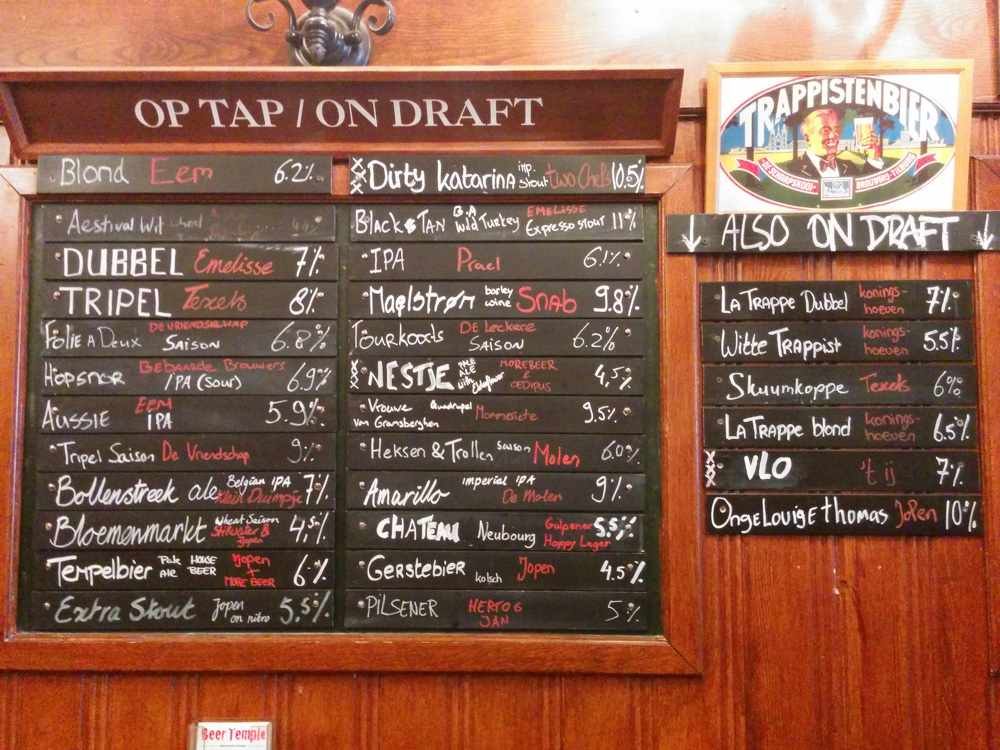 OP TAP / ON DRAFT
Blond Eem 6.2%
Aestival Wit wheat
DUBBEL Emelisse 7%
TRIPEL Texels 8%
Folie A Deux DE VRIENDSCHAP SAISON 6.8%
Hopsnor Bebaarde Brouwers IPA (sour) 6.9%
AUSSIE EEM IPA 5.9%
Tripel Saison De Vriendschap 9%
Bollenstreek ale Belgian IPA Klein Duimpje 7%
Bloemenmarkt Wheat Saison & Jopen 4,5%
Tempelbier Pale ALE HOUSE BEER Jopen + MORE BEER 6%
Extra Stout Jopen on nitro 5.5%
XXX Dirty katarina imp. stout two Chefs 10.5%
Black & TAN B.A Wild Turkey EMELISSE Espresso stout 11%
IPA Prael 6.1%
Maelstrøm barley wine SNAB 9.8%
Tourkoods DE Leckere SAISON 6.2%
XXX NESTJE PALE ALE with Elderflower MOREBEER & OEDIPUS 4,5%
Vrouwe van Gramsberghen Quadrupel Mommeriete 9.5%
Heksen & Trollen saison Molen 6.0%
Amarillo imperial IPA De Molen 9%
CHATEAU Neubourg Gulpener Hoppy Lager 5.5%
Gerstebier kolsch Jopen 4.5%
PILSENER HERTOG JAN 5%
TRAPPISTENBIER
"DE SCHAAPSKOOI" BROUWERIJ-TILBURG
↓ ALSO ON DRAFT ↓
LA TRAPPE Dubbel konings-hoeven 7%
Witte TRAPPIST konings-hoeven 5.5%
Skuumkoppe Texels 6%
LA TRAPPE blond konings-hoeven 6.5%
XXX VLO 't ij 7%
OngeLouige thomas JoPen 10%
Beer Temple